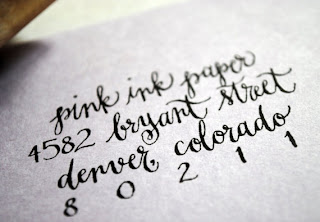 pink ink paper
4582 bryant street
denver colorado
8 0 2 1 1